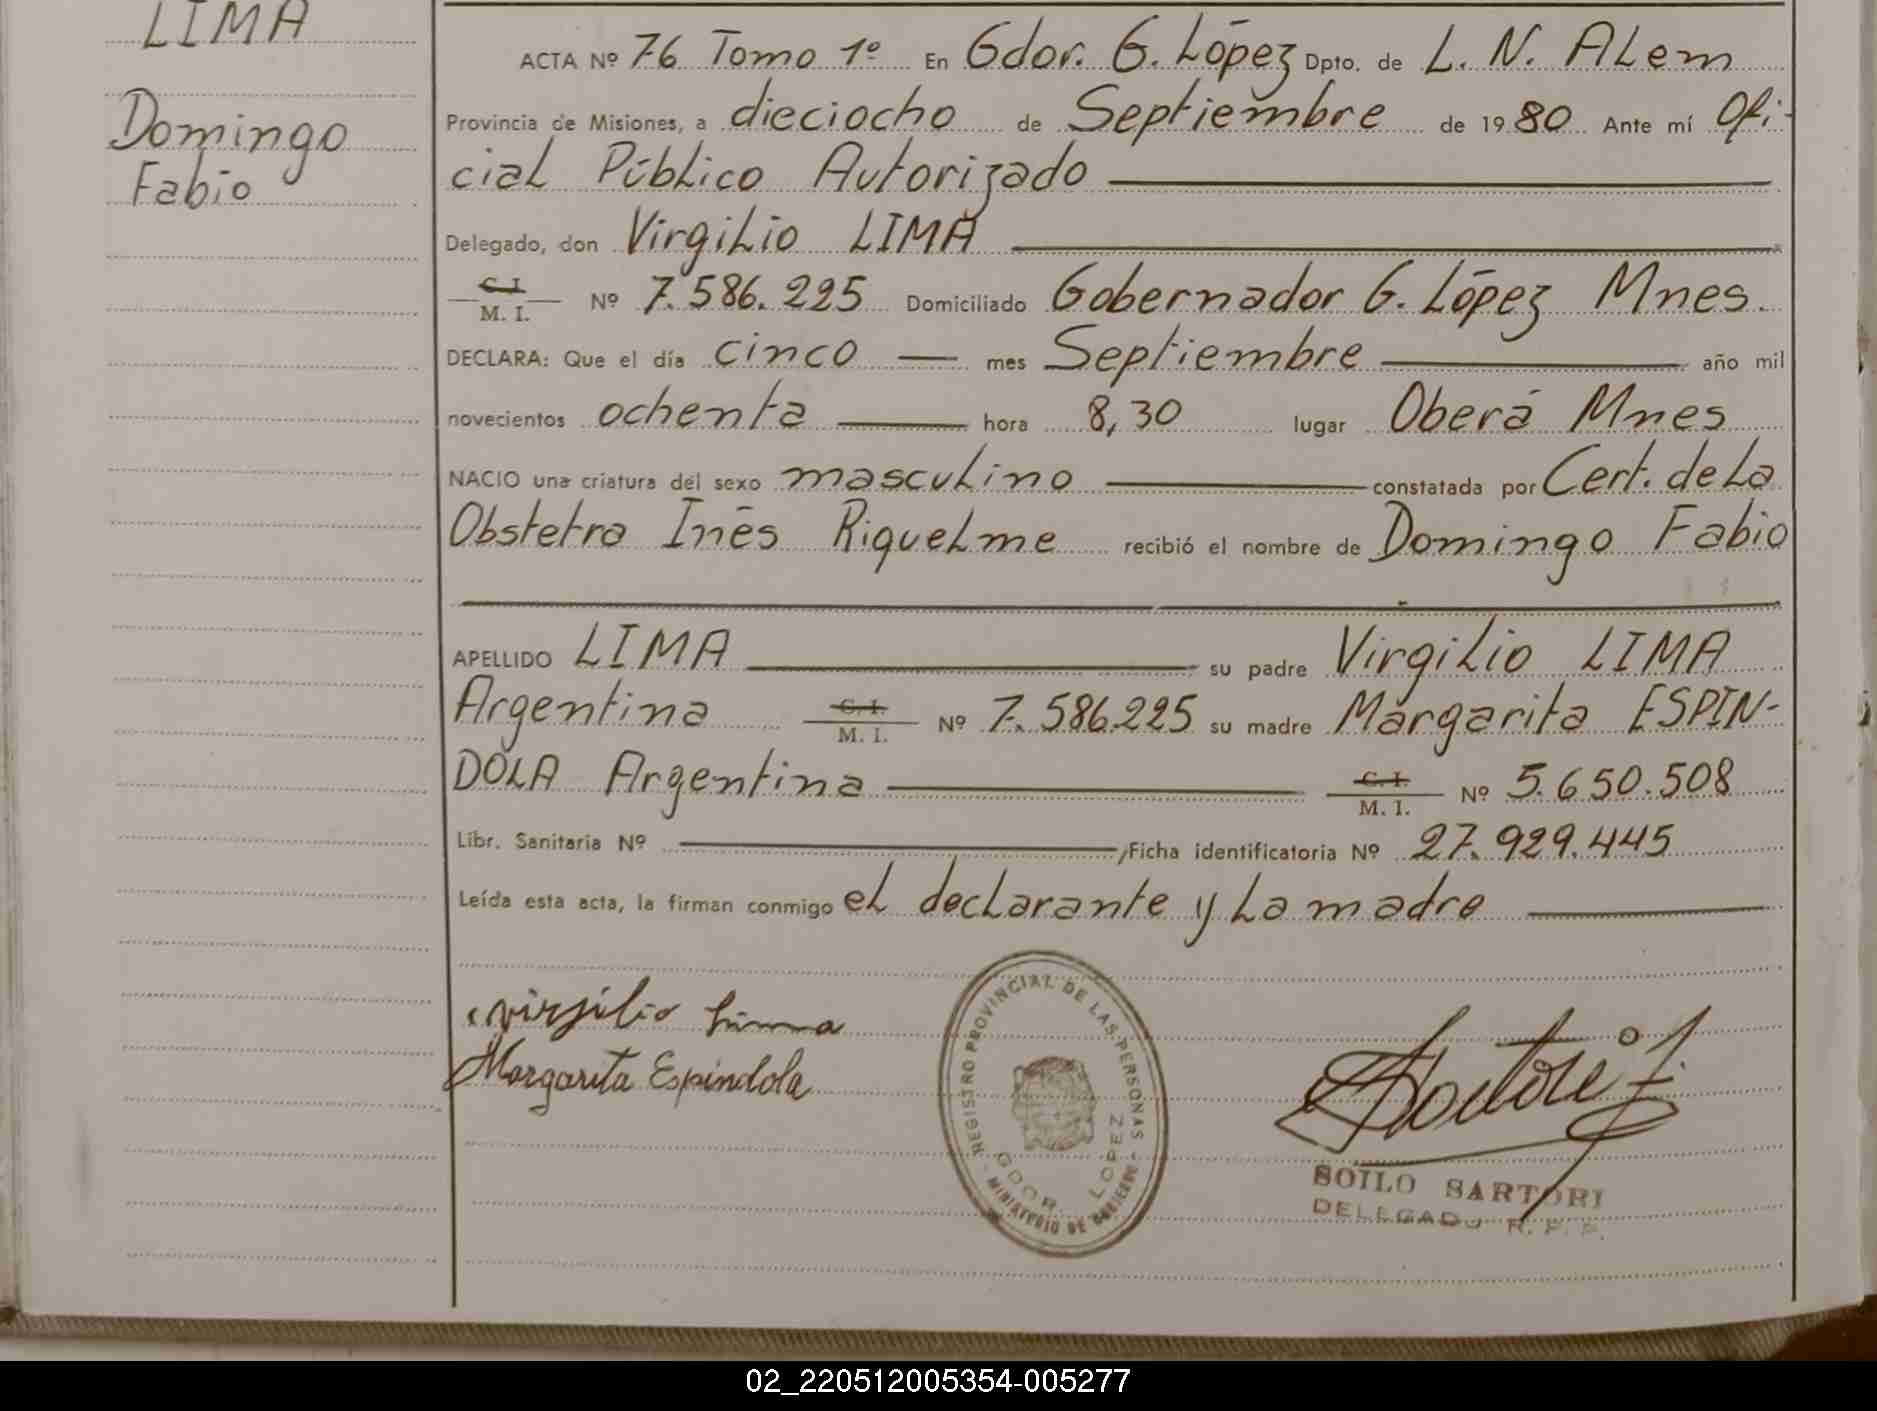 LIMA
Domingo
Fabio
ACTA Nº 76 Tomo 1º En Gdor. G. López Dpto. de L. N. ALem
Provincia de Misiones, a dieciocho de Septiembre de 1980 Ante mí Ofi-
cial Público Autorizado
Delegado, don Virgilio LIMA
C. I.
M. I. Nº 7.586.225 Domiciliado Gobernador G. López Mnes.
DECLARA: Que el día cinco mes Septiembre año mil
novecientos ochenta hora 8,30 lugar Oberá Mnes
NACIO una criatura del sexo masculino constatada por Cert. de La
Obstetra Inés Riquelme recibió el nombre de Domingo Fabio
APELLIDO LIMA su padre Virgilio LIMA
Argentina C. I. M. I. Nº 7.586.225 su madre Margarita ESPIN-
DOLA Argentina C. I. M. I. Nº 5.650.508
Libr. Sanitaria Nº Ficha identificatoria Nº 27.929.445
Leída esta acta, la firman conmigo el declarante y La madre
Virgilio Lima
Margarita Espindola
REGISTRO PROVINCIAL DE LAS PERSONAS
GDOR. LOPEZ
MINISTERIO DE GOBIERNO
Sartori
SOILO SARTORI
DELEGADO R. P. P.
02_220512005354-005277